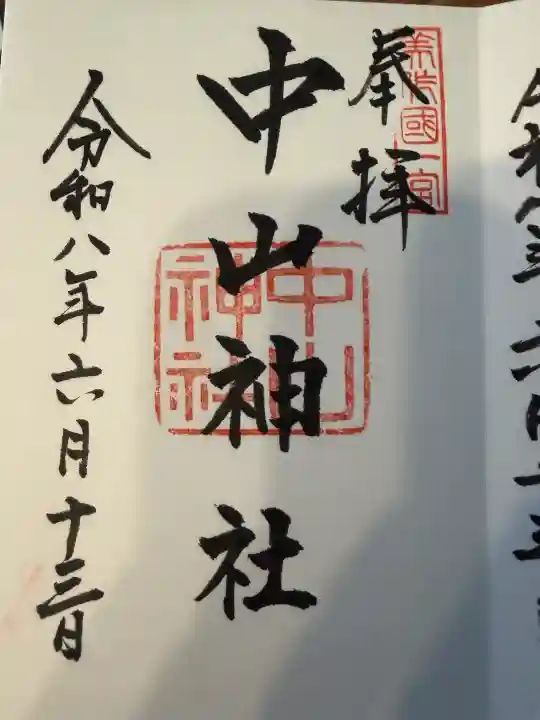 奉拝
美作國一宮
中山神社
中山神社
令和八年六月十三日